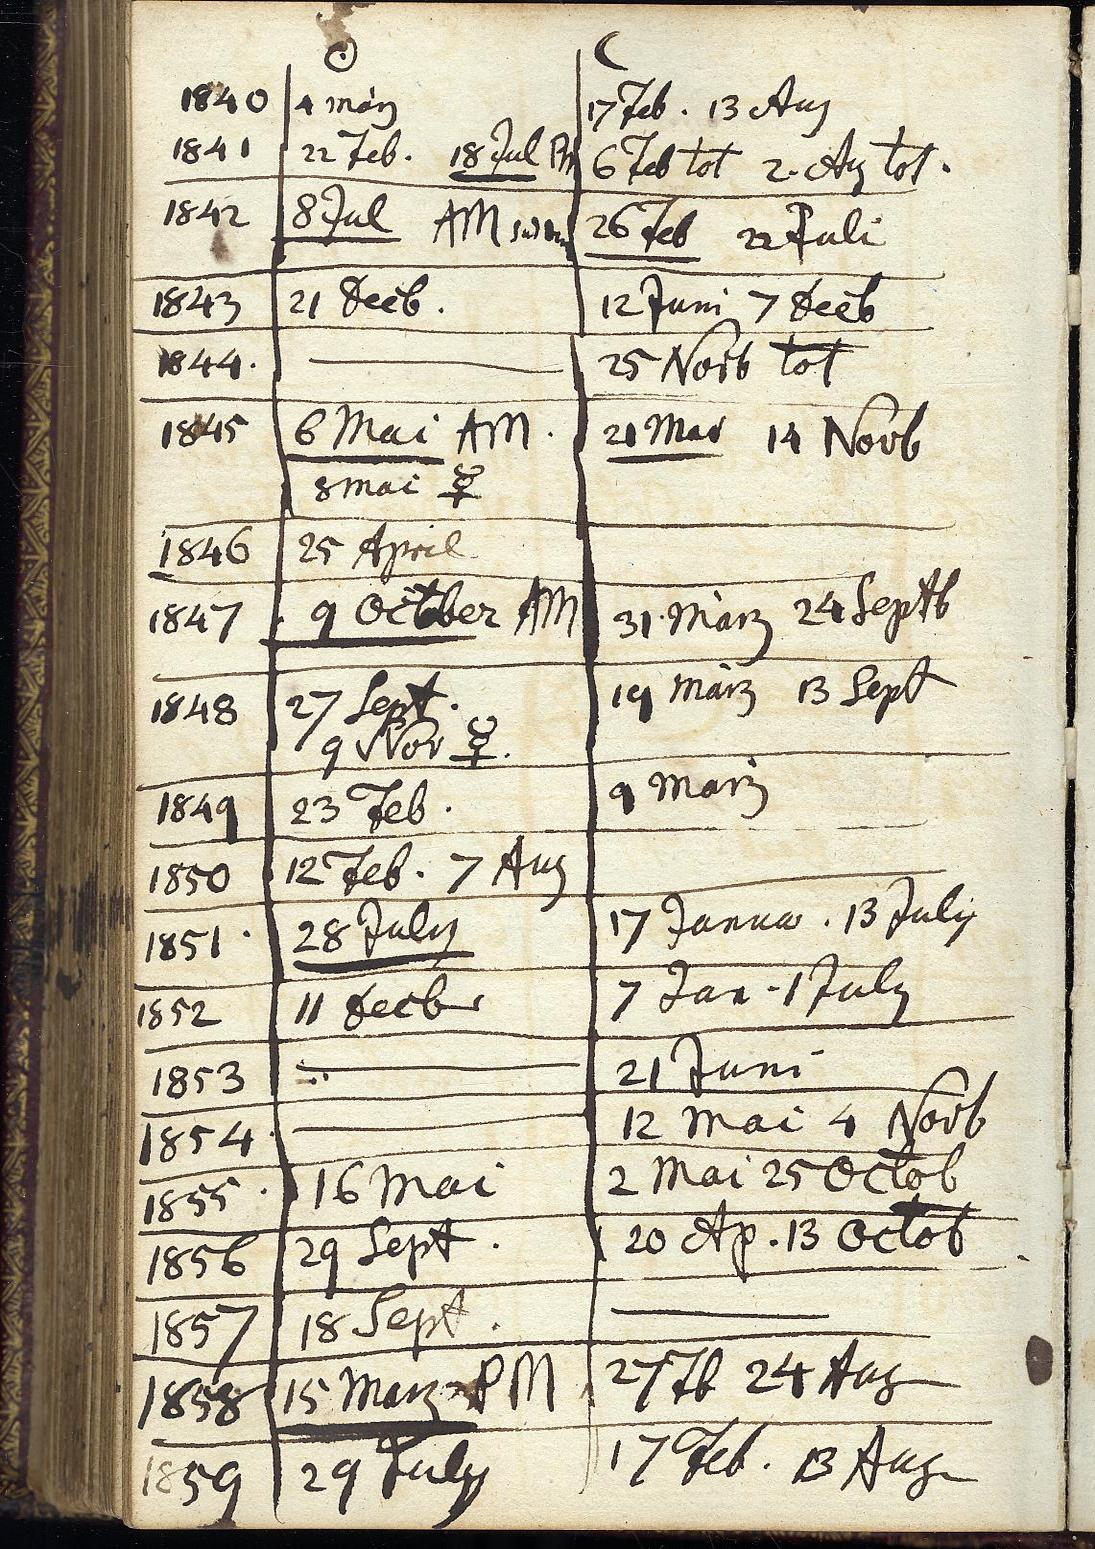 ☉ ☾
1840 4 März 17 Feb. 13 Aug
1841 22 Feb. 18 Jul PM 6 Feb tot 2. Aug tot.
1842 8 Jul AM 26 Feb 22 Juli
1843 21 Decb. 12 Juni 7 Decb
1844. — 25 Novb tot
1845 6 Mai AM. 21 Mai 14 Novb
8 Mai ☿
1846 25 April
1847 9 October AM 31 März 24 Septb
1848 27 Sept. 19 März 13 Sept
9 Nov ☿.
1849 23 Feb. 9 März
1850 12 Feb. 7 Aug
1851 28 July 17 Janua. 13 July
1852 11 Decbr 7 Jan - 1 July
1853 — 21 Juni
1854 — 12 Mai 4 Novb
1855 16 Mai 2 Mai 25 Octob
1856 29 Sept. 20 Ap. 13 Octob
1857 18 Sept. —
1858 15 März PM 27 Fb 24 Aug
1859 29 July 17 Feb. 13 Aug